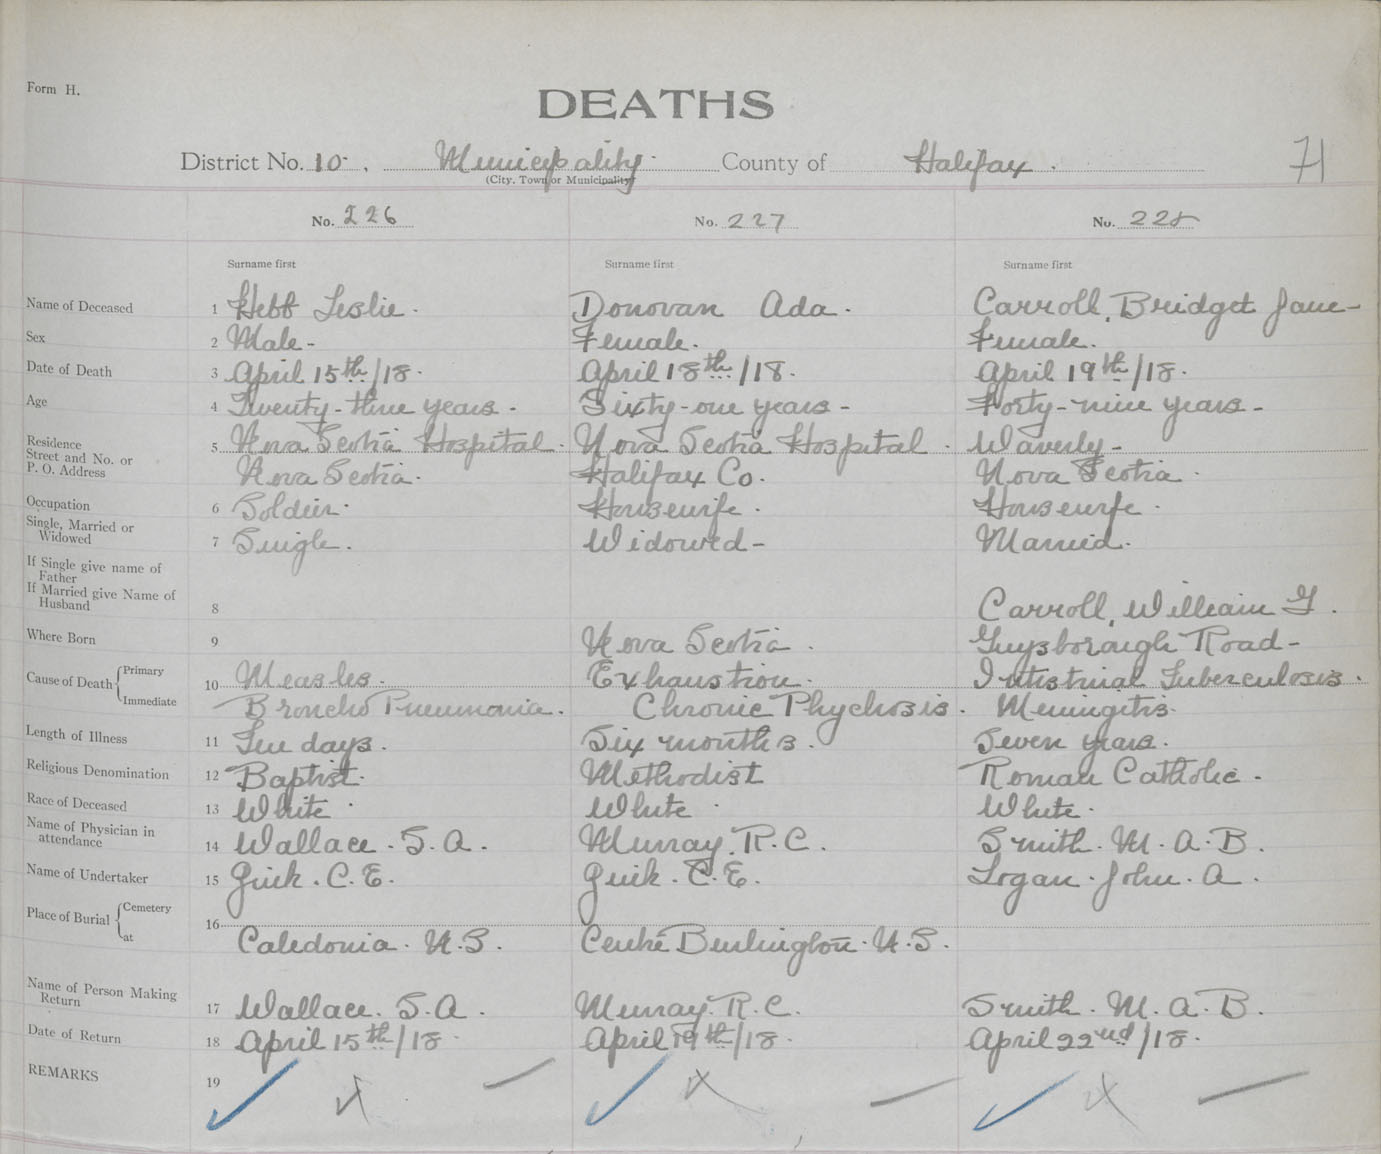 Form H.
DEATHS
District No. 10 , Municipality County of Halifax . 71
(City, Town or Municipality)
No. 226 No. 227 No. 228
Surname first Surname first Surname first
Name of Deceased 1 Hebb Leslie. Donovan Ada. Carroll, Bridget Jane-
Sex 2 Male- Female. Female.
Date of Death 3 April 15th/18. April 18th/18. April 19th/18.
Age 4 Twenty-three years. Sixty-one years- Forty-nine years-
Residence
Street and No. or 5 Nova Scotia Hospital. Nova Scotia Hospital. Waverly-
P. O. Address Nova Scotia. Halifax Co. Nova Scotia.
Occupation 6 Soldier. Housewife. Housewife.
Single, Married or
Widowed 7 Single. Widowed- Married.
If Single give name of
Father
If Married give Name of
Husband 8 Carroll, William G.
Where Born 9 Nova Scotia. Guysborough Road-
Cause of Death Primary 10 Measles. Exhaustion. Intistinal Tuberculosis.
Immediate Broncho Pneumonia. Chronic Phychosis. Meningitis.
Length of Illness 11 Ten days. Six months. Seven years.
Religious Denomination 12 Baptist. Methodist Roman Catholic.
Race of Deceased 13 White. White. White.
Name of Physician in
attendance 14 Wallace. S. A. Murray. R. C. Smith. M. A. B.
Name of Undertaker 15 C. E. C. E. Logan. John. A.
Place of Burial Cemetery 16
at Caledonia. N.S. Centre Burlington. N.S.
Name of Person Making
Return 17 Wallace. S. A. Murray. R. C. Smith. M. A. B.
Date of Return 18 April 15th/18. April 19th/18. April 22nd/18.
REMARKS 19